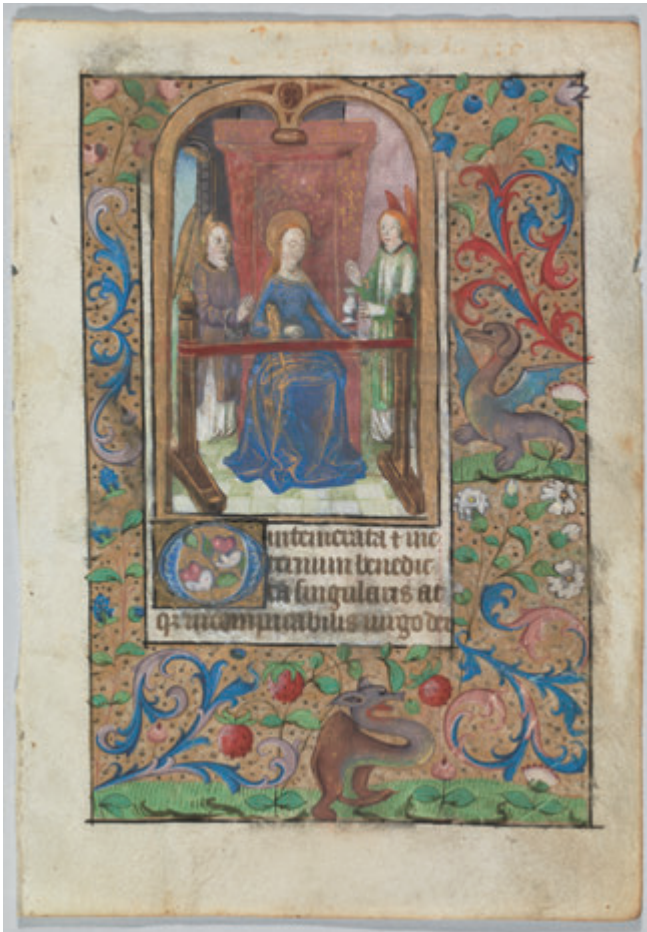 O intemerata ⁊ in e
ternum benedic
ta singularis at
qꝫ incomparabilis uirgo dei